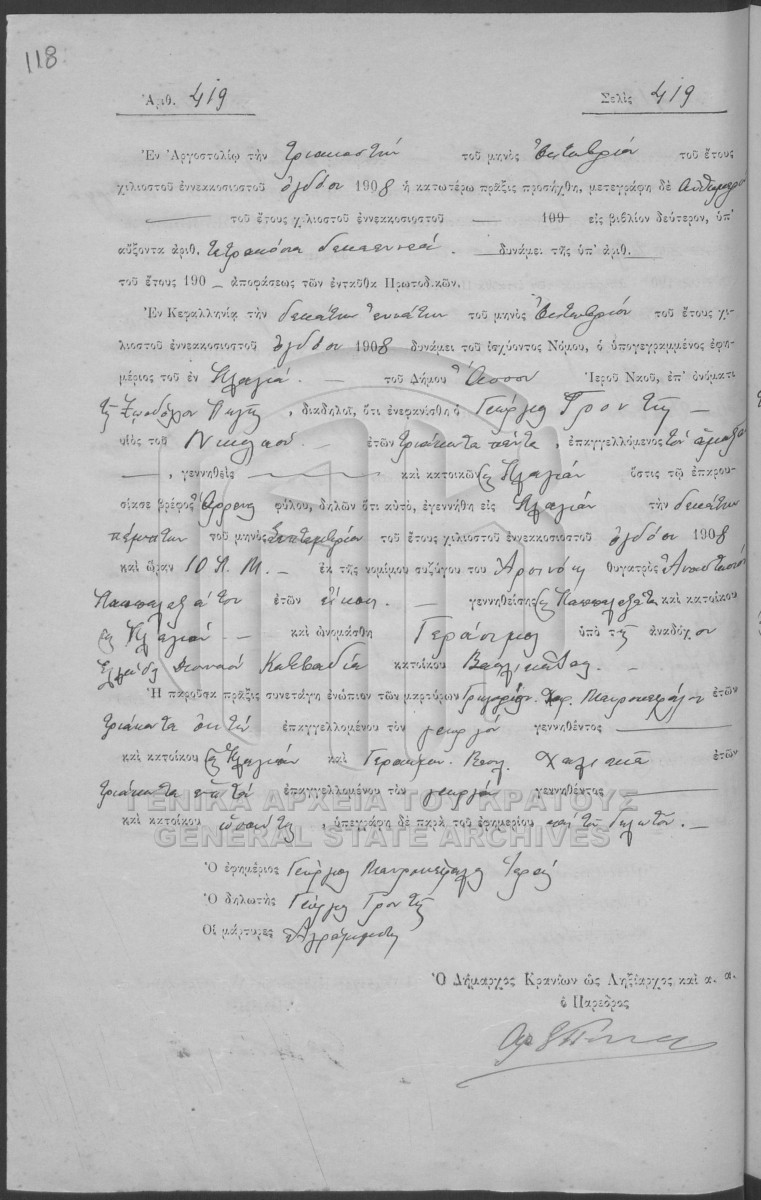 118
Ἀριθ. 419 Σελὶς 419
Ἐν Ἀργοστολίῳ τὴν τριακοστὴν τοῦ μηνὸς Ὀκτωβρίου τοῦ ἔτους
χιλιοστοῦ ἐννεακοσιοστοῦ ὀγδόου 1908 ἡ κατωτέρω πρᾶξις προσήχθη, μετεγράφη δὲ αὐθημερὸν
— τοῦ ἔτους χιλιοστοῦ ἐννεακοσιοστοῦ — 190 εἰς βιβλίον δεύτερον, ὑπ'
αὔξοντα ἀριθ. τετρακόσια δεκαεννέα. — δυνάμει τῆς ὑπ' ἀριθ. —
τοῦ ἔτους 190 — ἀποφάσεως τῶν ἐνταῦθα Πρωτοδικῶν.
Ἐν Κεφαλληνίᾳ τὴν δεκάτην ἐννάτην τοῦ μηνὸς Ὀκτωβρίου τοῦ ἔτους χι-
λιοστοῦ ἐννεακοσιοστοῦ ὀγδόου 1908 δυνάμει τοῦ ἰσχύοντος Νόμου, ὁ ὑπογεγραμμένος ἐφη-
μέριος τοῦ ἐν Πλαγιᾷ — τοῦ Δήμου Ἱεροῦ Ναοῦ, ἐπ' ὀνόματι
τῆς Ζωοδόχου Πηγῆς, διαδηλοῖ, ὅτι ἐνεφανίσθη ὁ Γεώργιος —
υἱὸς τοῦ Νικολάου — ἐτῶν τριάκοντα πέντε, ἐπαγγελλόμενος τὸν ἁμαξᾶ
—, γεννηθεὶς — καὶ κατοικῶν εἰς Πλαγιὰν ὅστις τῷ ἐπαρου-
σίασε βρέφος ἄρρενος φύλου, δηλῶν ὅτι αὐτὸ, ἐγεννήθη εἰς Πλαγιὰν τὴν δεκάτην
πέμπτην τοῦ μηνὸς Σεπτεμβρίου τοῦ ἔτους χιλιοστοῦ ἐννεακοσιοστοῦ ὀγδόου 1908
καὶ ὥραν 10 Π. Μ. — ἐκ τῆς νομίμου συζύγου του Ἀρσινόης θυγατρὸς Ἀναστασίου
ἐτῶν εἴκοσι. — γεννηθείσης εἰς καὶ κατοίκου
εἰς Πλαγιὰν — καὶ ὠνομάσθη Γεράσιμος ὑπὸ τῆς ἀναδόχου
Διονυσίου Καββαδία κατοίκου —
Ἡ παροῦσα πρᾶξις συνετάγη ἐνώπιον τῶν μαρτύρων Γρηγορίου Χαρ. Μαυροκεφάλου ἐτῶν
τριάκοντα ὀκτὼ ἐπαγγελλομένου τὸν γεωργὸν γεννηθέντος —
καὶ κατοίκου εἰς Πλαγιὰν καὶ Γερασίμου Βασ. ἐτῶν
τριάκοντα ἑπτὰ ἐπαγγελλομένου τὸν γεωργὸν γεννηθέντος —
καὶ κατοίκου ὡσαύτως, ὑπεγράφη δὲ παρὰ τοῦ ἐφημερίου καὶ τοῦ δηλωτοῦ. —
ΓΕΝΙΚΑ ΑΡΧΕΙΑ ΤΟΥ ΚΡΑΤΟΥΣ
GENERAL STATE ARCHIVES
Ὁ ἐφημέριος Γεώργιος Μαυροκέφαλος Ἱερεὺς
Ὁ δηλωτὴς Γεώργιος
Οἱ μάρτυρες Ἀγράμματοι
Ὁ Δήμαρχος Κρανίων ὡς Ληξίαρχος καὶ α. α.
ὁ Πάρεδρος